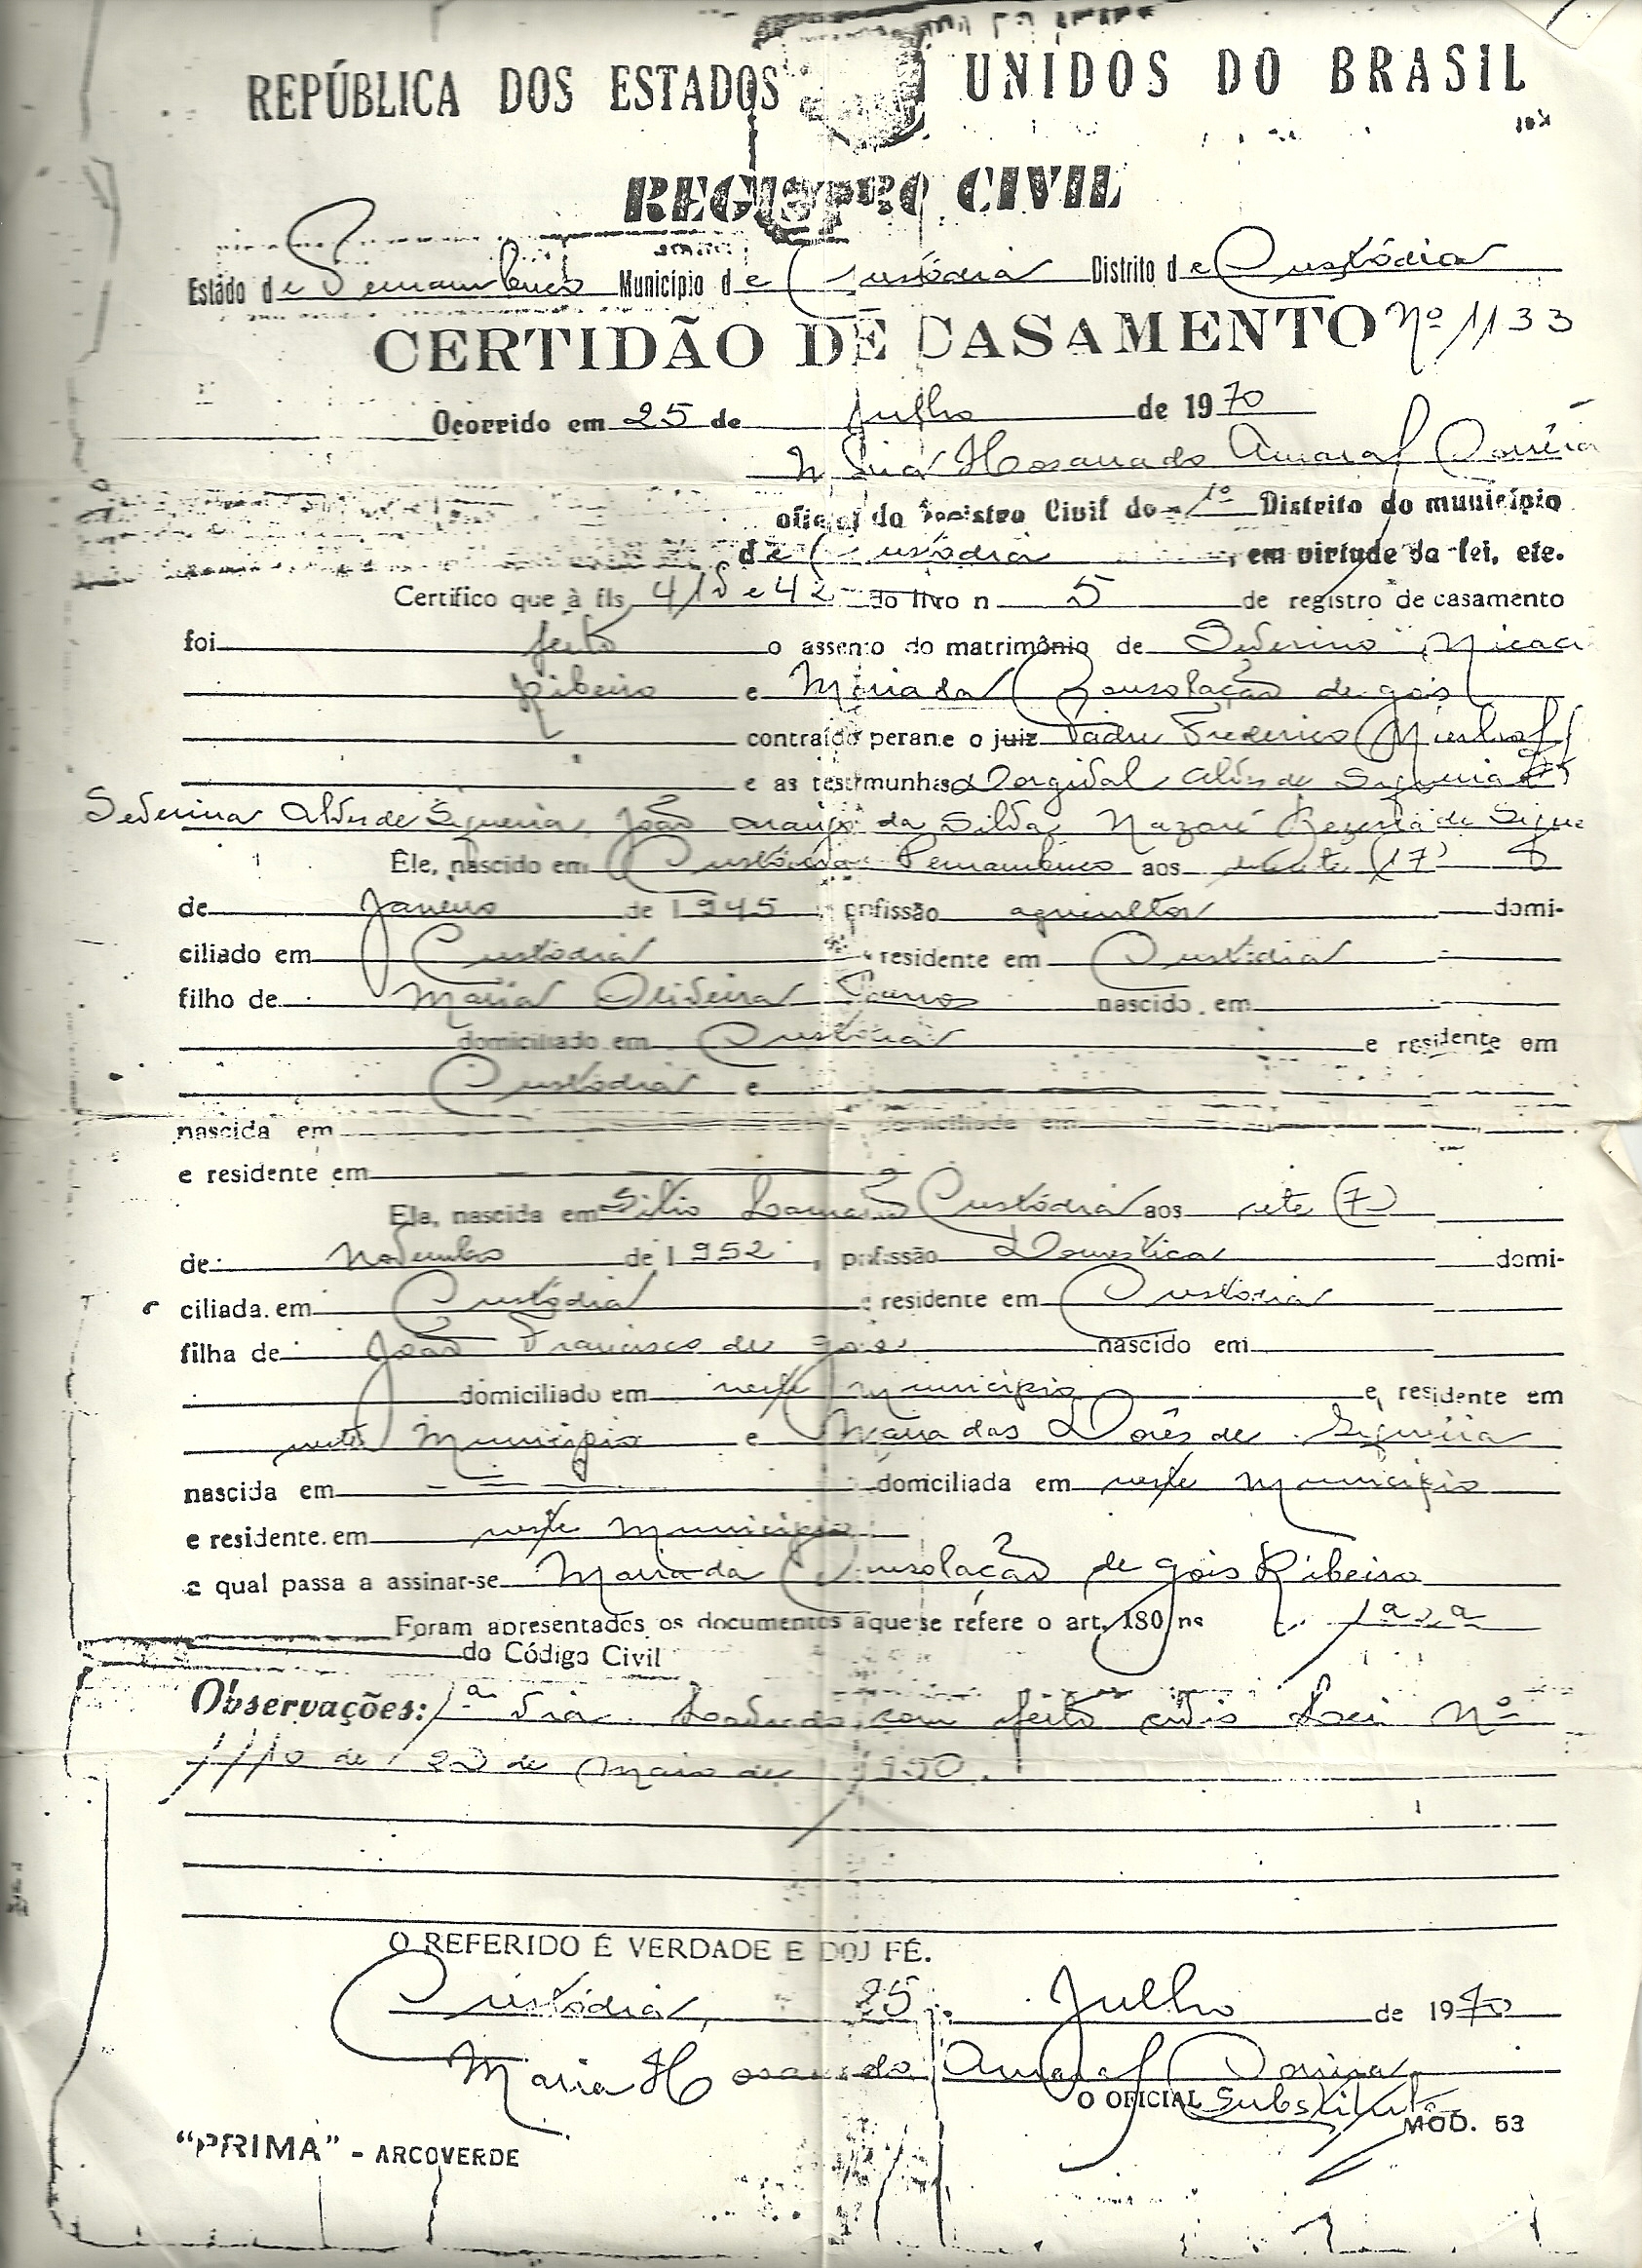 REPÚBLICA DOS ESTADOS UNIDOS DO BRASIL
REGISTRO CIVIL
Estado de Pernambuco Município de Custódia Distrito de Custódia
CERTIDÃO DE CASAMENTO Nº 1133
Ocorrido em 25 de Julho de 1970
Hosana do Amaral
oficial do Registro Civil do 1º Distrito do município
de Custódia, em virtude da lei, etc.
Certifico que à fls. 41 e 42 do livro n 5 de registro de casamento
foi feito o assento do matrimônio de Severino
Ribeiro e Maria da Consolação de gois
contraído perante o juiz Padre Frederico
e as testimunhas Dorgival Alves de Siqueira
Severina Alves de Siqueira, João Araujo da Silva, Nazaré Bezerra de
Êle, nascido em Custódia Pernambuco aos (17)
de Janeiro de 1945, pofissão agricultor domi-
ciliado em Custódia e residente em Custódia
filho de Maria Oliveira nascido em
domiciliado em Custódia e residente em
Custódia e
nascida em domiciliada em
e residente em
Ela, nascida em Sitio Custódia aos sete (7)
de Novembro de 1952, pofissão Domestica domi-
ciliada em Custódia e residente em Custódia
filha de João Francisco de gois nascido em
domiciliado em neste Município e, residente em
neste Município e Maria das Dôres de Siqueira
nascida em domiciliada em neste Município
e residente em neste Município
a qual passa a assinar-se Maria da Consolação de gois Ribeiro
Foram apresentados os documentos a que se refere o art. 180 ns 1ª 2ª
do Código Civil
Observações: 1ª via. feito civis Lei Nº
1110 de 23 de Maio de 1950.
O REFERIDO É VERDADE E DOU FÉ.
Custódia, 25 Julho de 1970
Maria Hosana do Amaral
O OFICIAL Substituta
MOD. 53
"PRIMA" - ARCOVERDE